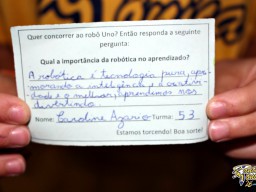 Quer concorrer ao robô Uno? Então responda a seguinte
pergunta:
Qual a importância da robótica no aprendizado?
A robótica é tecnologia pura, apri-
morando a inteligência e a criativi-
dade e o melhor, aprendemos nos
divertindo.
Nome: Caroline Azario Turma: 53
Estamos torcendo! Boa sorte!